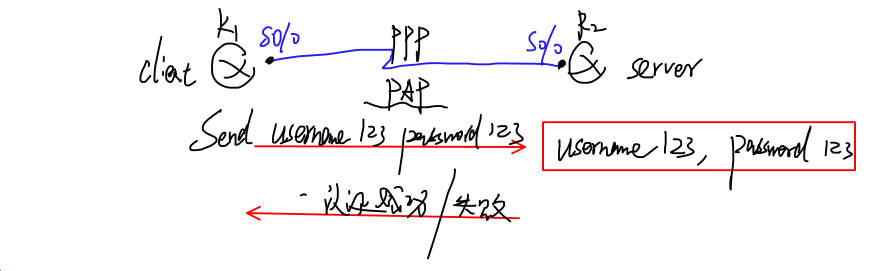 R1 R2
S0/0 PPP S0/0
client server
PAP
Send username 123 password 123 username 123, password 123
认证成功/失败